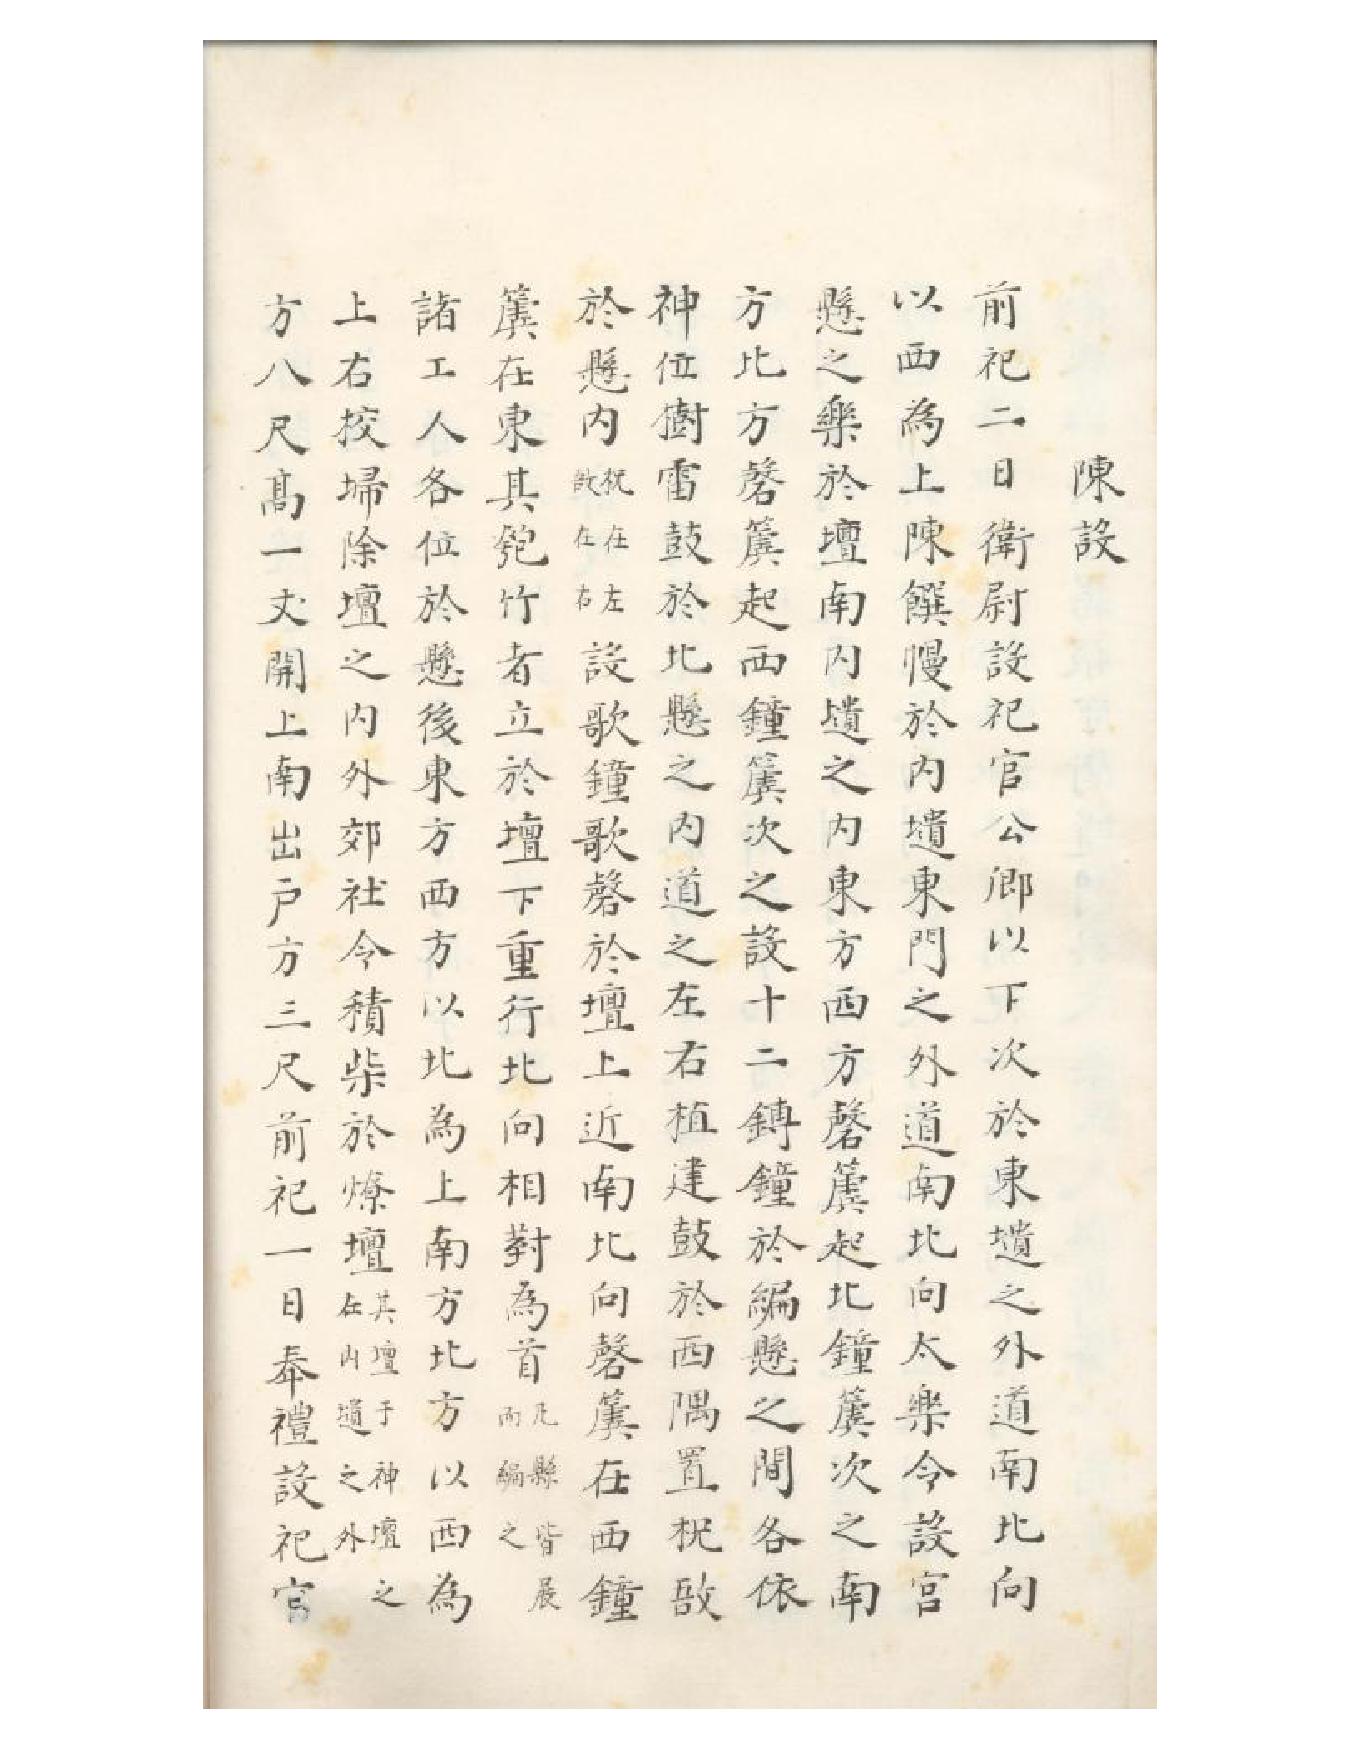 陳設
前祀二日衛尉設祀官公卿以下次於東壝之外道南北向
以西為上陳饌幔於内壝東門之外道南北向太樂令設宮
懸之樂於壇南内壝之内東方西方磬簴起北鐘簴次之南
方北方磬簴起西鐘簴次之設十二鎛鐘於編懸之間各依
神位樹雷鼓於北懸之内道之左右植建鼓於西隅置柷敔
於懸内柷在左敔在右設歌鐘歌磬於壇上近南北向磬簴在西鐘
簴在東其匏竹者立於壇下重行北向相對為首凡縣皆展而編之
諸工人各位於懸後東方西方以北為上南方北方以西為
上右挍埽除壇之内外郊社令積柴於燎壇其壇于神壇之在内壝之外
方八尺髙一丈開上南出户方三尺前祀一日奉禮設祀官